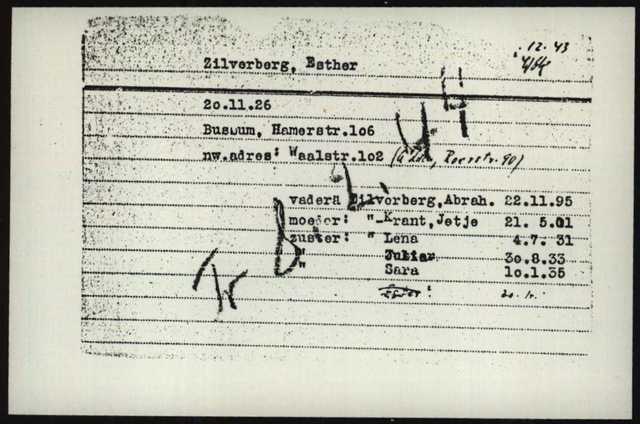 12. 43
Zilverberg, Esther
20.11.26
Bussum, Hamerstr.106
nw.adres: Waalstr.102
vader: Zilverberg, Abrah. 22.11.95
moeder: " Krant, Jetje 21. 5.01
zuster: " Lena 4.7. 31
" Julia 30.8.33
Sara 10.1.35
Tr